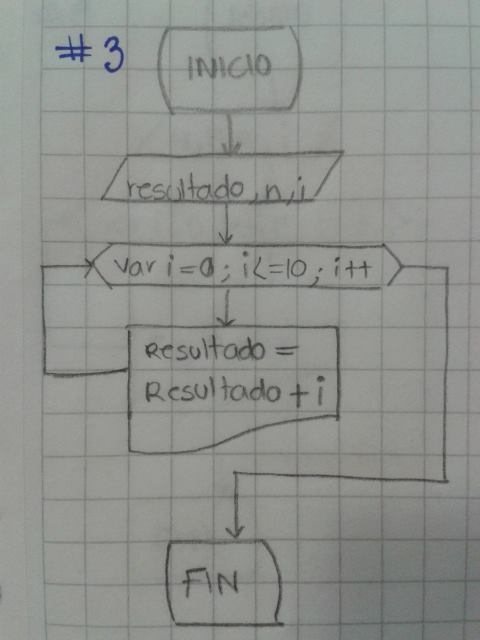 #3
INICIO
resultado, n, i
var i=0; i<=10; i++
Resultado =
Resultado + i
FIN